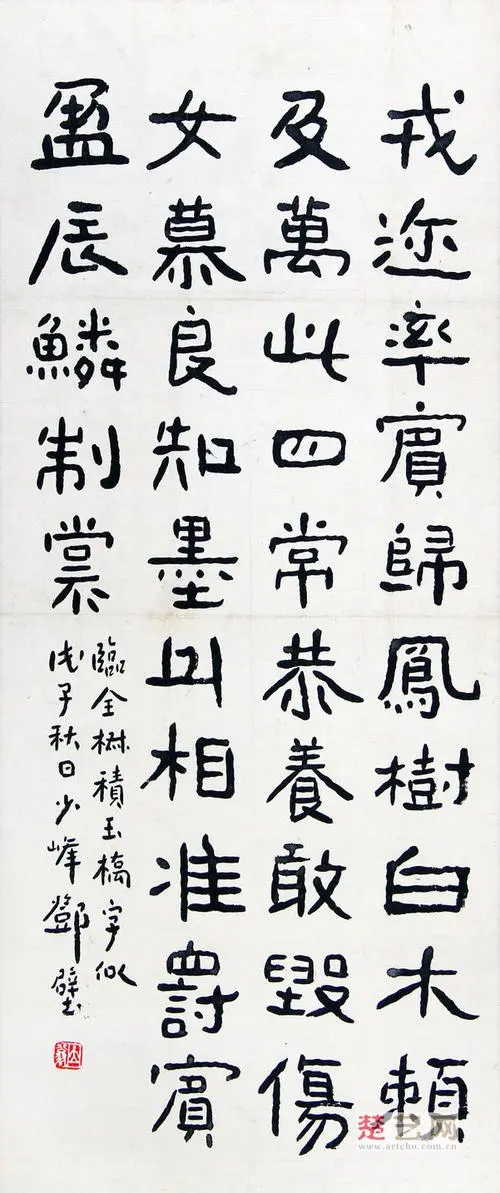 戎迩率賓歸鳳樹白木賴
及萬此四常恭養敢毀傷
女慕良知墨相准罰賓
盈辰鱗制裳
臨全椒積玉橋字似
戊子秋日少峰鄧璧
楚艺网
www.artchu.com.cn